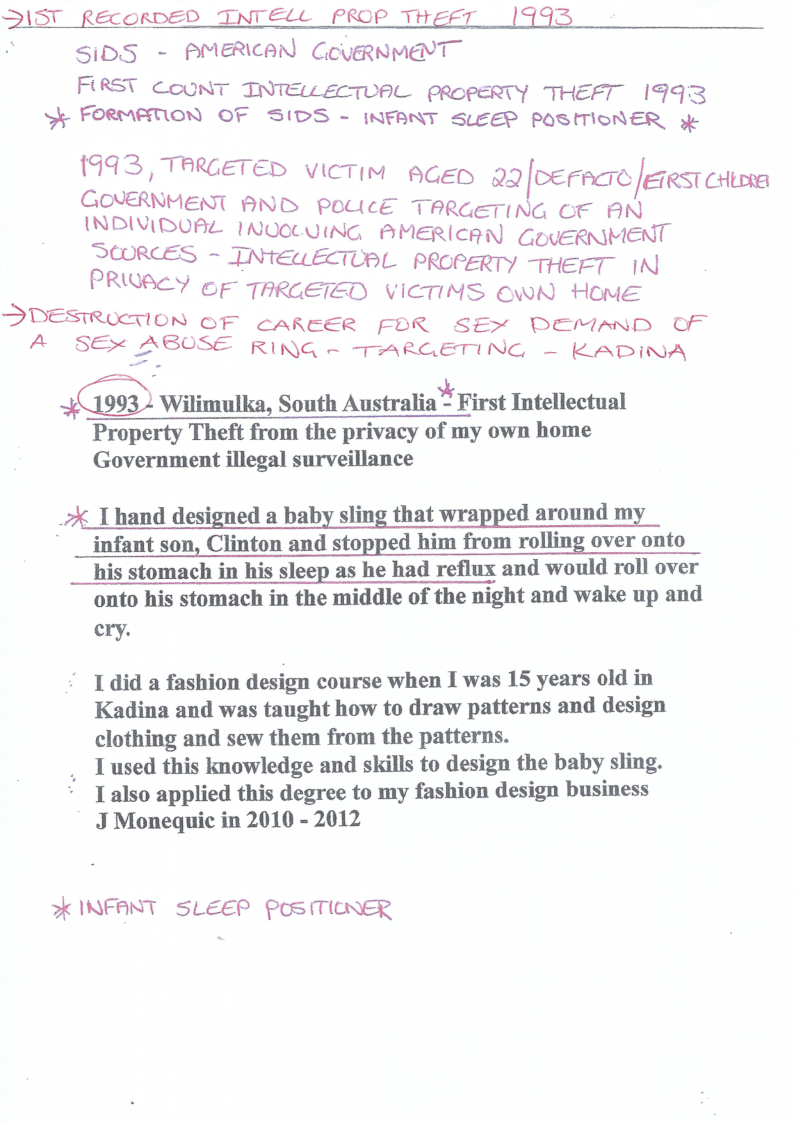 →1ST RECORDED INTELL PROP THEFT 1993
SIDS - AMERICAN GOVERNMENT
FIRST COUNT INTELLECTUAL PROPERTY THEFT 1993
* FORMATION OF SIDS - INFANT SLEEP POSITIONER *
1993, TARGETED VICTIM AGED 22/DEFACTO/FIRST CHILDREN
GOVERNMENT AND POLICE TARGETING OF AN
INDIVIDUAL INVOLVING AMERICAN GOVERNMENT
SOURCES - INTELLECTUAL PROPERTY THEFT IN
PRIVACY OF TARGETED VICTIMS OWN HOME
→DESTRUCTION OF CAREER FOR SEX DEMAND OF
A SEX ABUSE RING - TARGETING - KADINA
* 1993 - Wilimulka, South Australia * - First Intellectual
Property Theft from the privacy of my own home
Government illegal surveillance
* I hand designed a baby sling that wrapped around my
infant son, Clinton and stopped him from rolling over onto
his stomach in his sleep as he had reflux and would roll over
onto his stomach in the middle of the night and wake up and
cry.
I did a fashion design course when I was 15 years old in
Kadina and was taught how to draw patterns and design
clothing and sew them from the patterns.
I used this knowledge and skills to design the baby sling.
I also applied this degree to my fashion design business
J Monequic in 2010 - 2012
* INFANT SLEEP POSITIONER